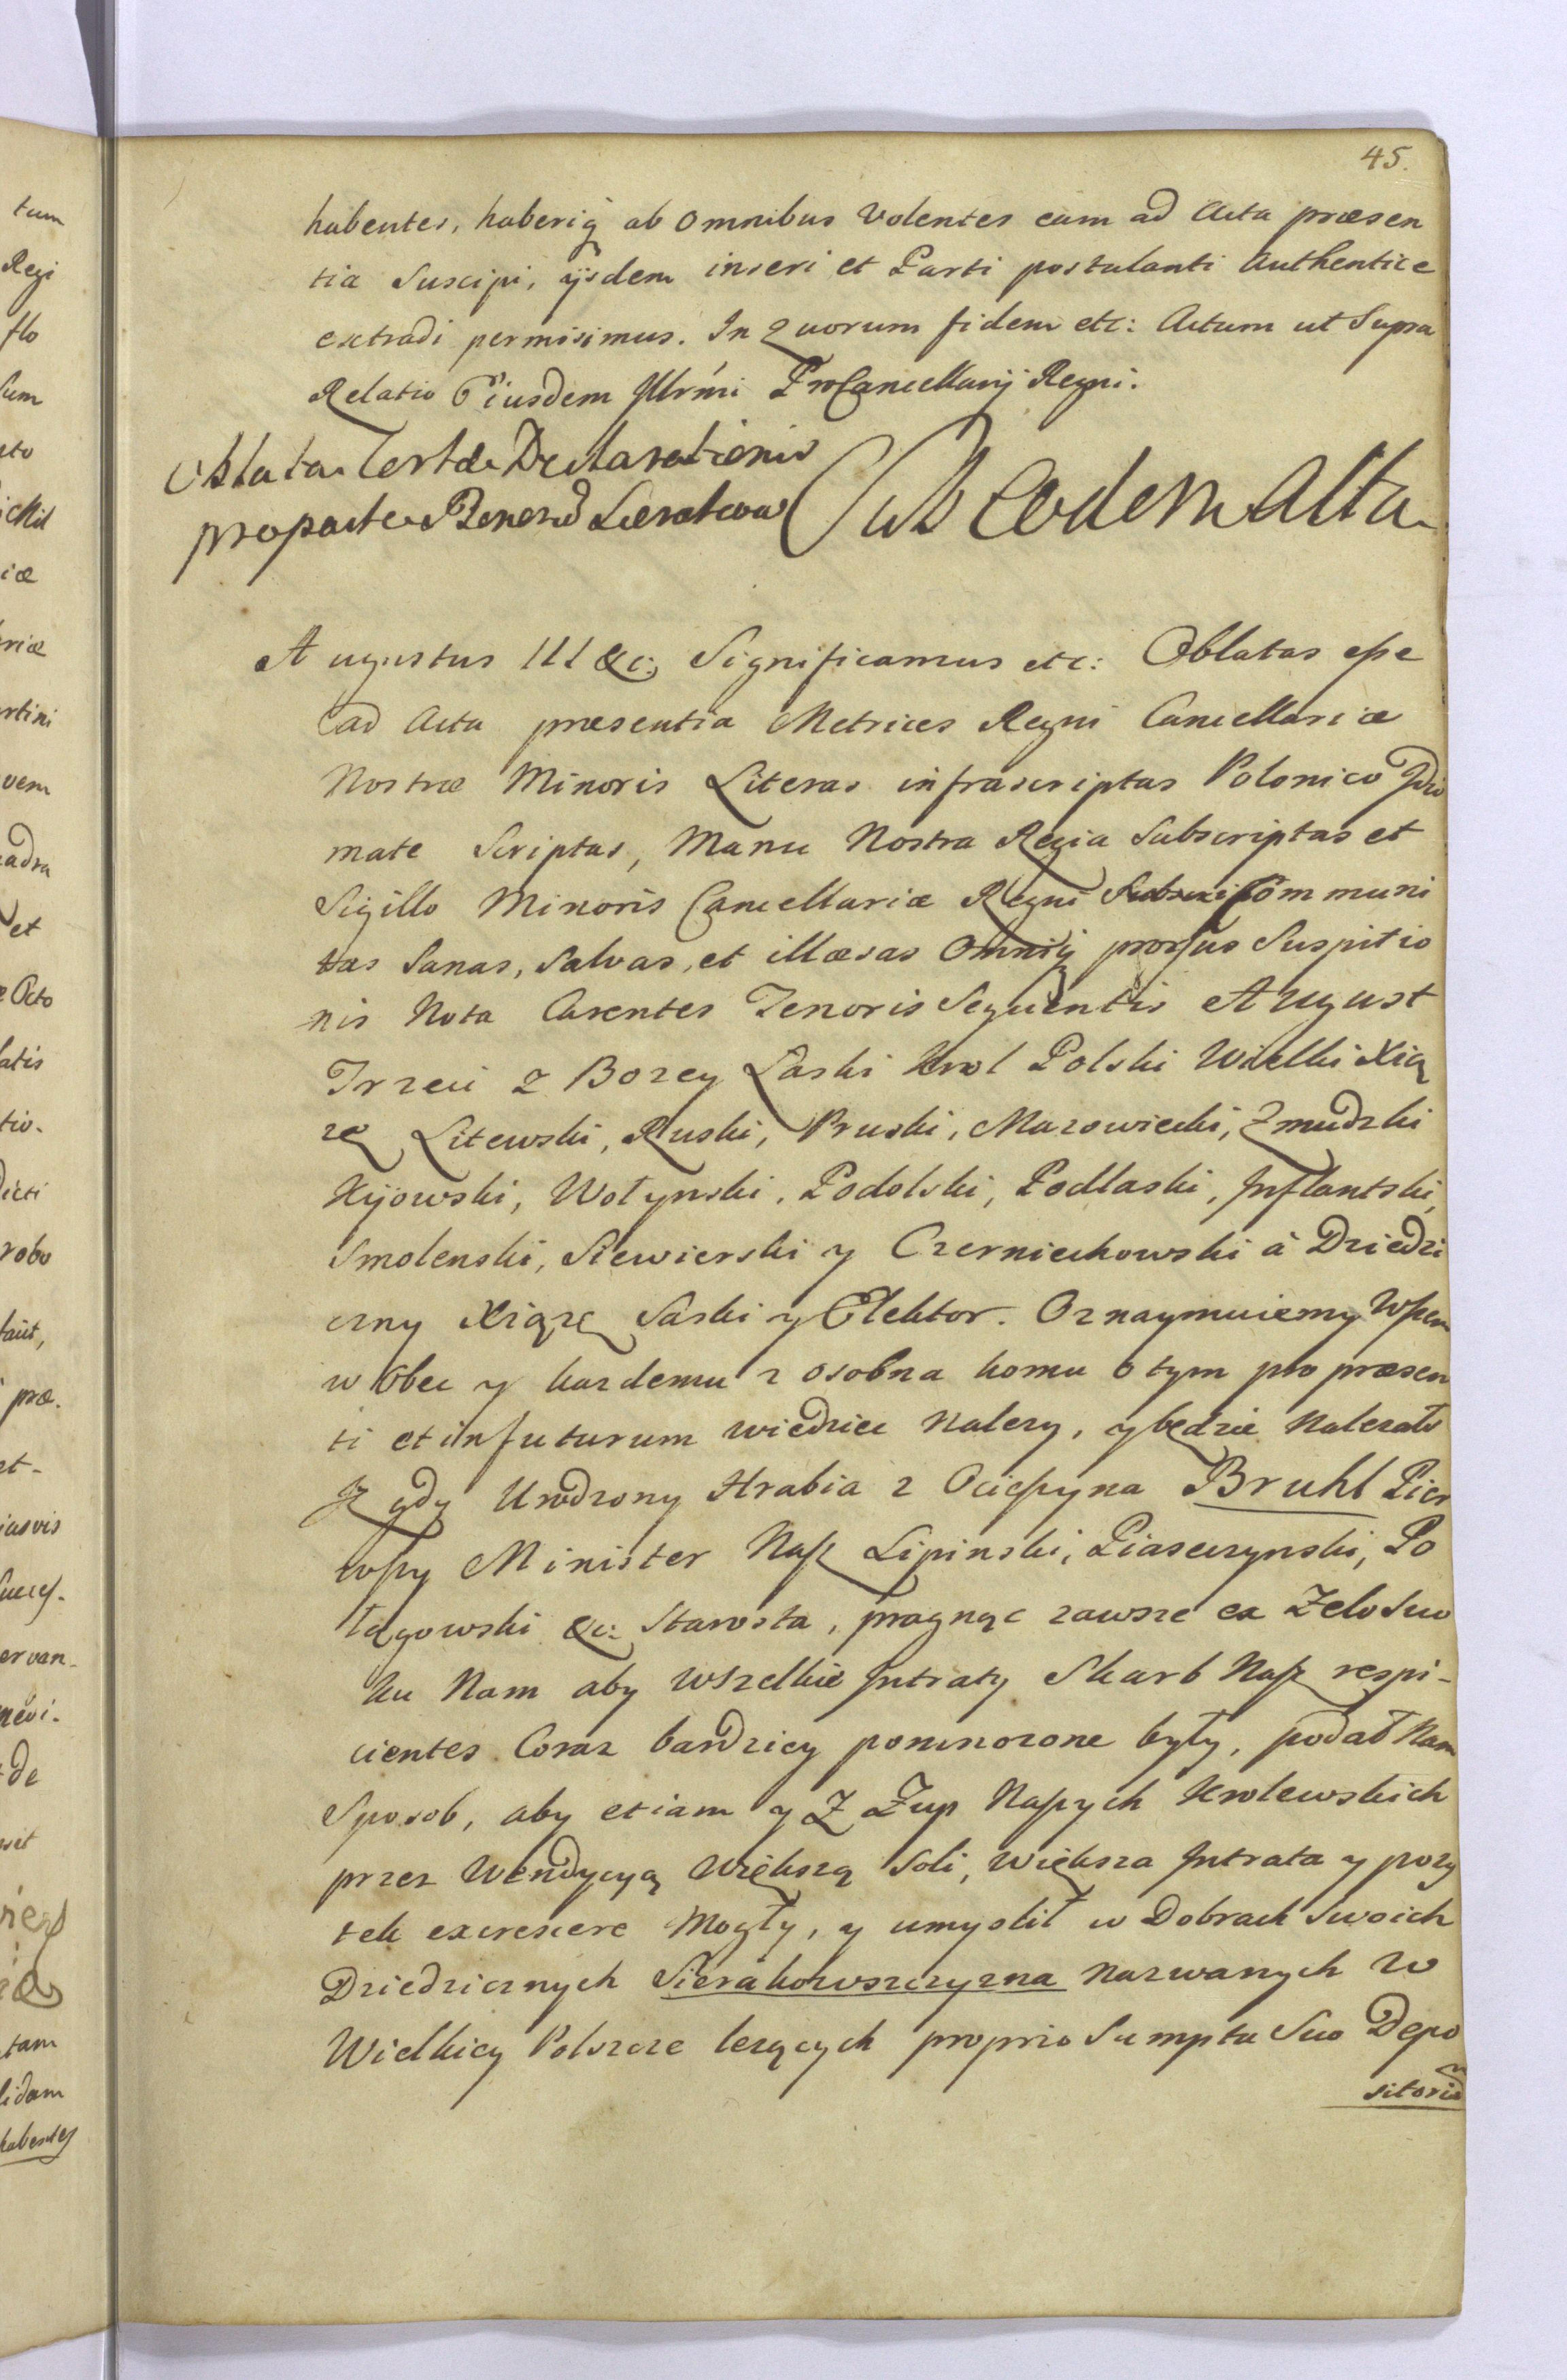 45.
habentes, haberiq ab omnibus volentes eam ad Acta præsen
tia Suscipi, ijsdem inseri et Parti postulanti Authentice
extradi permisimus. In quorum fidem etc: Actum ut Supra
Relatio Eiusdem Illrmi ProCancellarij Regni.
Oblata Certæ Declarationis
pro parte Sub eodem Acta
Augustus III &c; Significamus etc: Oblatas esse
ad Acta præsentia Metrices Regni Cancellariæ
Nostræ Minoris Literas infrascriptas Polonico Idio
mate Scriptas, Manu Nostra Regia Subscriptas et
Sigillo Minoris Cancellariæ Regni Communi
tas Sanas, Salvas, et illæsas Omniq prorsus Suspitio
nis Nota Carentes Tenoris Sequentis August
Trzeci z Bozey Łaski Krol Polski Wielki Xią
zę Litewski, Ruski, Pruski, Mazowiecki, Zmudzki
Kijowski, Wołynski, Podolski, Podlaski, Inflantski,
Smolenski, Siewierski y Czerniechowski à Dziedzi
czny Xiąze Saski y Elektor. Oznaymuiemy Wszem
w Obec y kazdemu z osobna komu o tym pro præsen
ti et in futurum wiedziec Nalezy, y będzie Nalezało
Iz gdy Urodzony Hrabia z Ocieszyna Bruhl Pier
wszy Minister Nasz Lipinski, Piaseczynski, Bo
łęgowski &c: Starosta, pragnąc zawsze ex Zelo Suo
ku Nam aby Wszelkie Intraty Skarb Nasz respi-
cientes Coraz bardziey pomnozone były, podał Nam
Sposob, aby etiam y Z Zup Naszych Krolewskich
przez Wendycyą Większą Soli, większa Intrata y pozy
tek excrescere Mogły, y umyslił w Dobrach Swoich
Dziedzicznych Sierakowszczyzna Nazwanych w
Wielkiey Polszcze lezących proprio Sumptu Suo Depo
sitoria